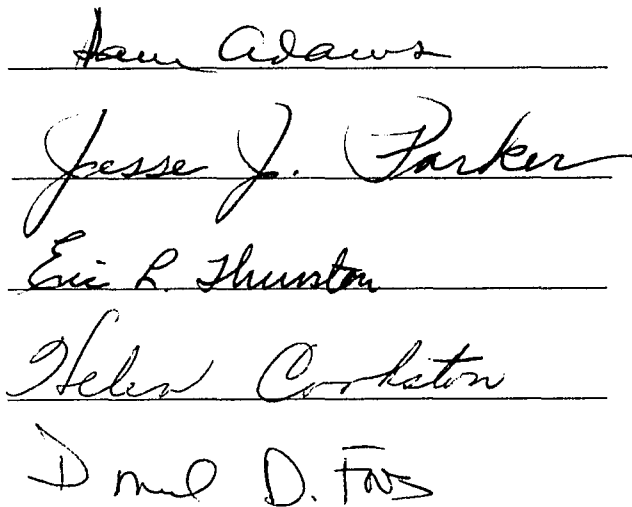 Sam Adams
Jesse J. Parker
Eric L. Thurston
Helen Cookston
D.